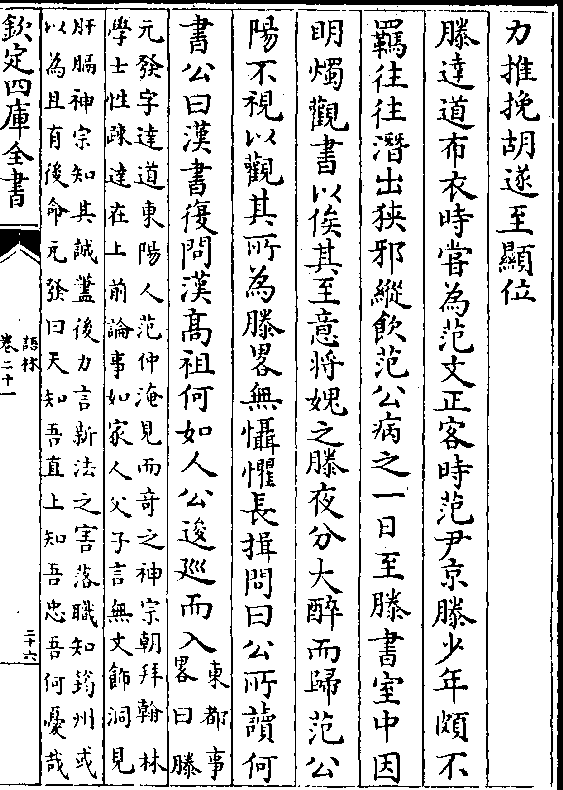 力推挽胡遂至顯位
滕達道布衣時嘗為范文正客時范尹京滕少年頗不
羈往往潛出狹邪縱飲范公病之一日至滕書室中因
明燭觀書以俟其至意將媿之滕夜分大醉而歸范公
陽不視以觀其所為滕畧無懾懼長揖問曰公所讀何
書公曰漢書復問漢髙祖何如人公逡廵而入
東都事
畧曰滕
元發字達道東陽人范仲淹見而奇之神宗朝拜翰林
學士性疎達在上前論事如家人父子言無文飾洞見
肝膈神宗知其誠藎後力言新法之害落職知筠州或
以為且有後命元發曰天知吾直上知吾忠吾何憂哉
欽定四庫全書
語林
卷二十一
二十六